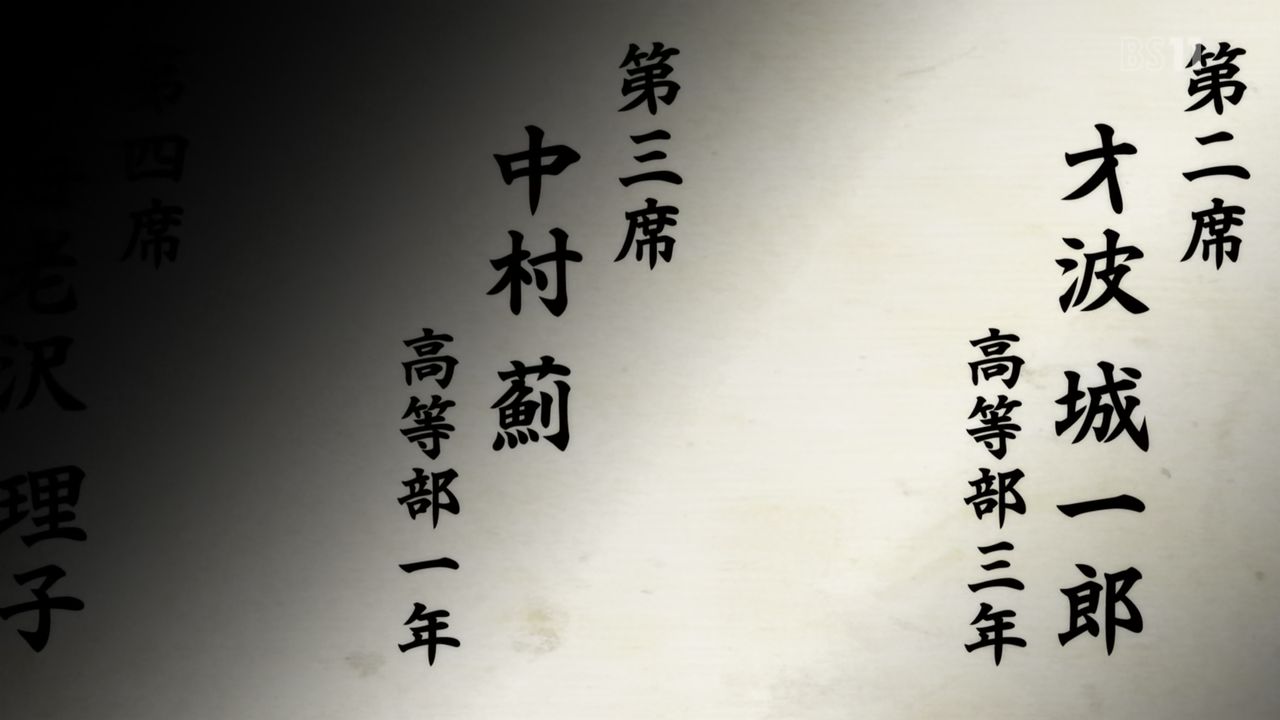 BS11
第二席
才波 城一郎
高等部三年
第三席
中村 薊
高等部一年
第四席
老沢 理子